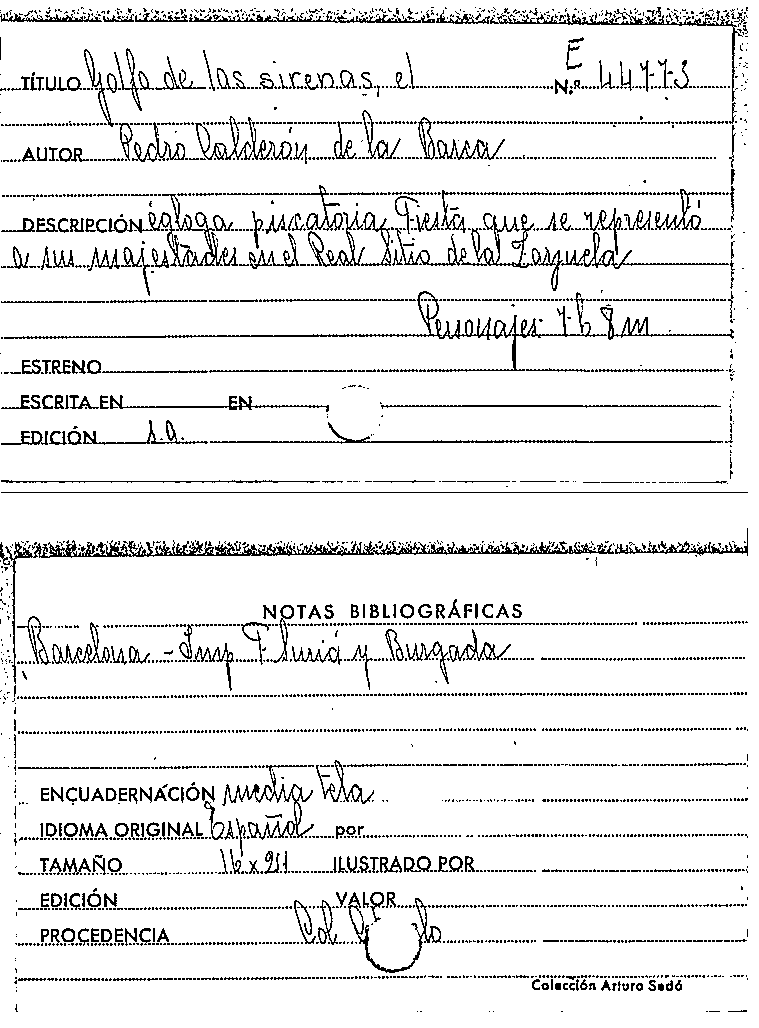 TÍTULO Golfo de las sirenas, el E N.º 44773
AUTOR Pedro Calderón de la Barca
DESCRIPCIÓN égloga piscatoria. Fiesta que se representó
a sus majestades en el Real Sitio de la Zarzuela
Personajes: 7 h 8 m
ESTRENO
ESCRITA EN EN
EDICIÓN s.a.
NOTAS BIBLIOGRÁFICAS
Barcelona - Imp y Burgada
ENCUADERNACIÓN media tela
IDIOMA ORIGINAL Español por
TAMAÑO 16 x ILUSTRADO POR
EDICIÓN VALOR
PROCEDENCIA Col
Colección Arturo Sedó